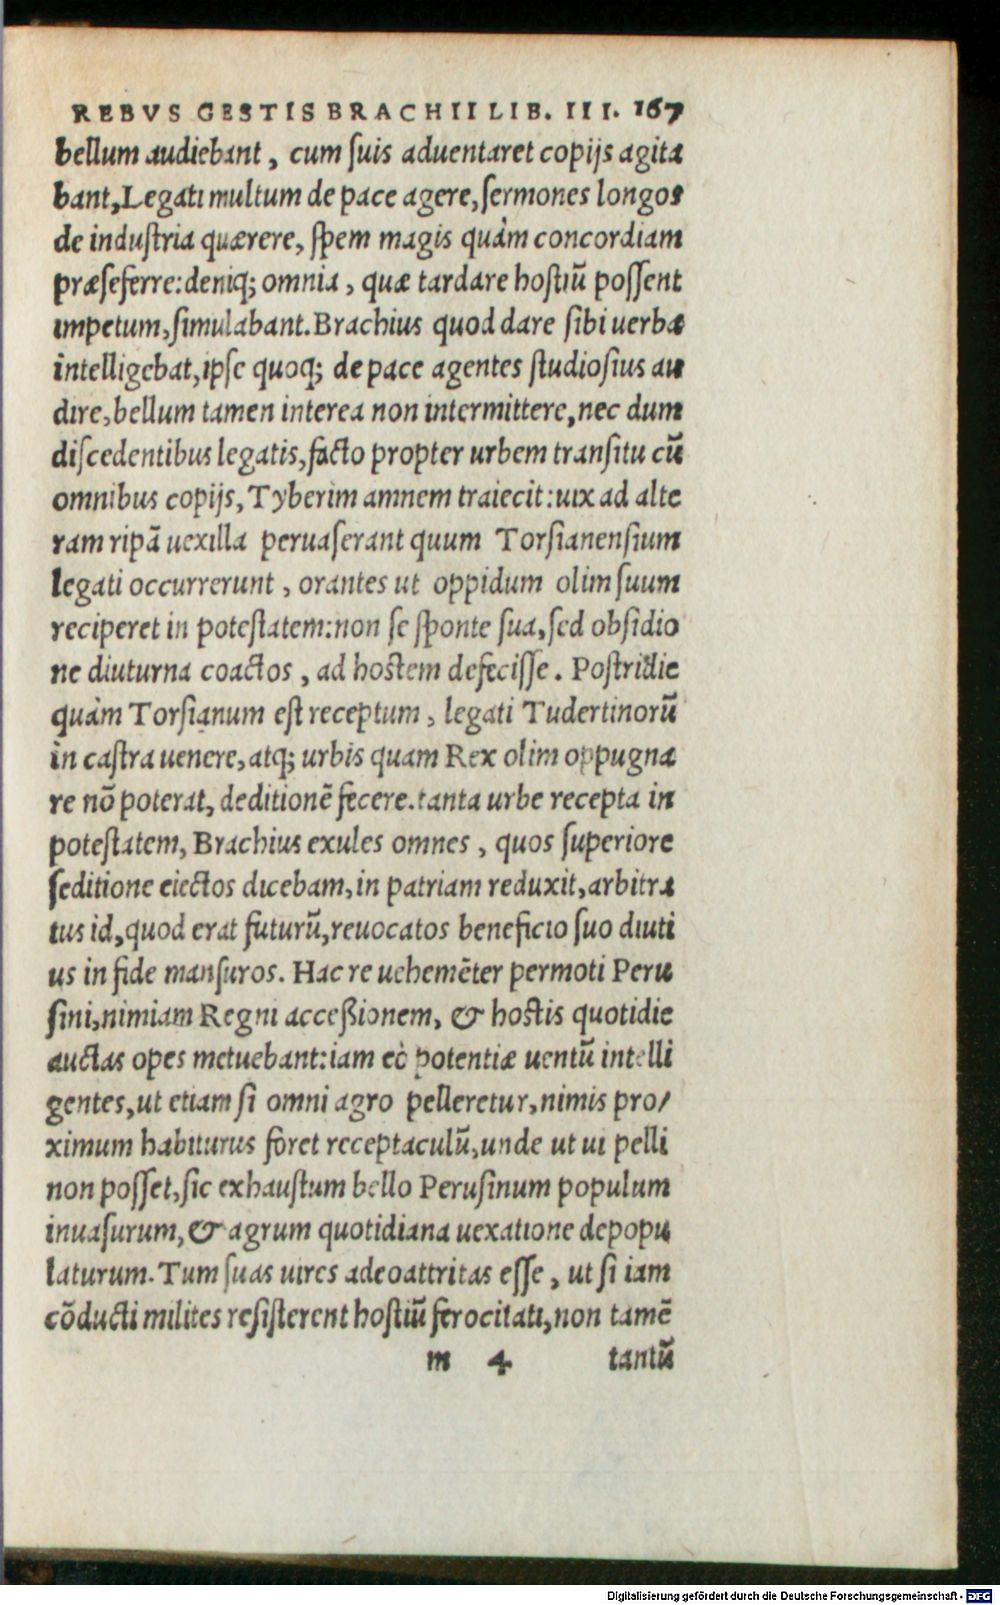 REBVS GESTIS BRACHII LIB. III. 167
bellum audiebant, cum ſuis aduentaret copijs agita
bant, Legati multum de pace agere, ſermones longos
de induſtria quærere, ſpem magis quàm concordiam
præſeferre: deniq; omnia, quæ tardare hoſtiũ poſſent
impetum, ſimulabant. Brachius quod dare ſibi uerba
intelligebat, ipſe quoq; de pace agentes ſtudioſius au
dire, bellum tamen interea non intermittere, nec dum
diſcedentibus legatis, facto propter urbem tranſitu cũ
omnibus copijs, Tyberim amnem traiecit: uix ad alte
ram ripã uexilla peruaſerant quum Torſianenſium
legati occurrerunt, orantes ut oppidum olim ſuum
reciperet in poteſtatem: non ſe ſponte ſua, ſed obſidio
ne diuturna coactos, ad hoſtem defeciſſe. Poſtridie
quàm Torſianum eſt receptum, legati Tudertinorũ
in caſtra uenere, atq; urbis quam Rex olim oppugna
re nõ poterat, deditionẽ fecere. tanta urbe recepta in
poteſtatem, Brachius exules omnes, quos ſuperiore
ſeditione eiectos dicebam, in patriam reduxit, arbitra
tus id, quod erat futurũ, reuocatos beneficio ſuo diuti
us in fide manſuros. Hac re uehemẽter permoti Peru
ſini, nimiam Regni acceßionem, & hoſtis quotidie
auctas opes metuebant: iam eò potentiæ uentũ intelli
gentes, ut etiam ſi omni agro pelleretur, nimis pro/
ximum habiturus foret receptaculũ, unde ut ui pelli
non poſſet, ſic exhauſtum bello Peruſinum populum
inuaſurum, & agrum quotidiana uexatione depopu
laturum. Tum ſuas uires adeo attritas eſſe, ut ſi iam
cõducti milites reſiſterent hoſtiũ ferocitati, non tamẽ
m 4 tantũ
Digitalisierung gefördert durch die Deutsche Forschungsgemeinschaft - DFG